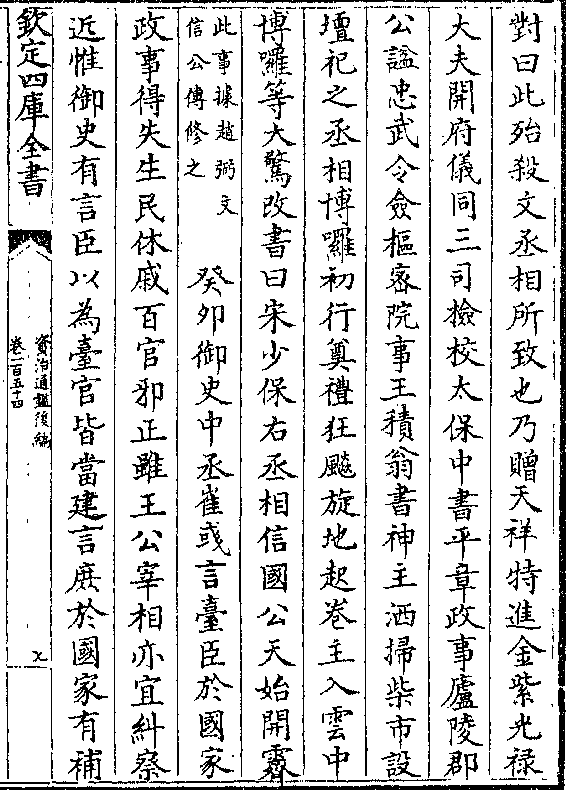 對曰此殆殺文丞相所致也乃贈天祥特進金紫光禄
大夫開府儀同三司檢校太保中書平章政事廬陵郡
公諡忠武令僉樞宻院事王積翁書神主洒掃柴市設
壇祀之丞相博囉初行奠禮狂飈旋地起卷主入雲中
博囉等大驚改書曰宋少保右丞相信國公天始開霽
此事據趙弼文
信公傳修之
癸夘御史中丞崔彧言臺臣於國家
政事得失生民休戚百官邪正雖王公宰相亦宜糾察
近惟御史有言臣以為臺官皆當建言庶於國家有補
欽定四庫全書
資治通鑑後編
卷一百五十四